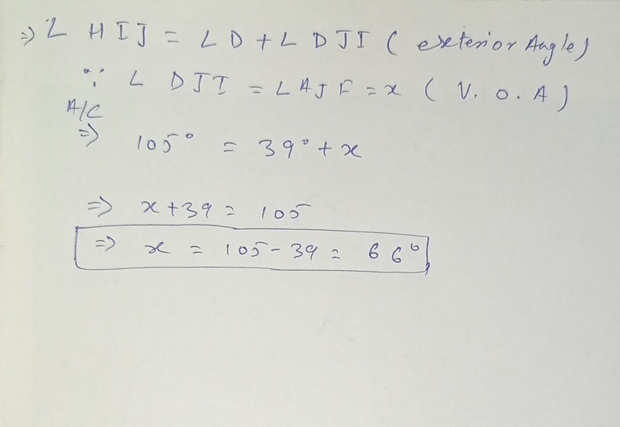 ⇒ ∠ HIJ = ∠D + ∠ DJI ( exterior Angle)
∵ ∠ DJI = ∠AJF = x ( V. O. A )
A/C
⇒ 105° = 39° + x
⇒ x + 39 = 105
⇒ x = 105 - 39 = 66°